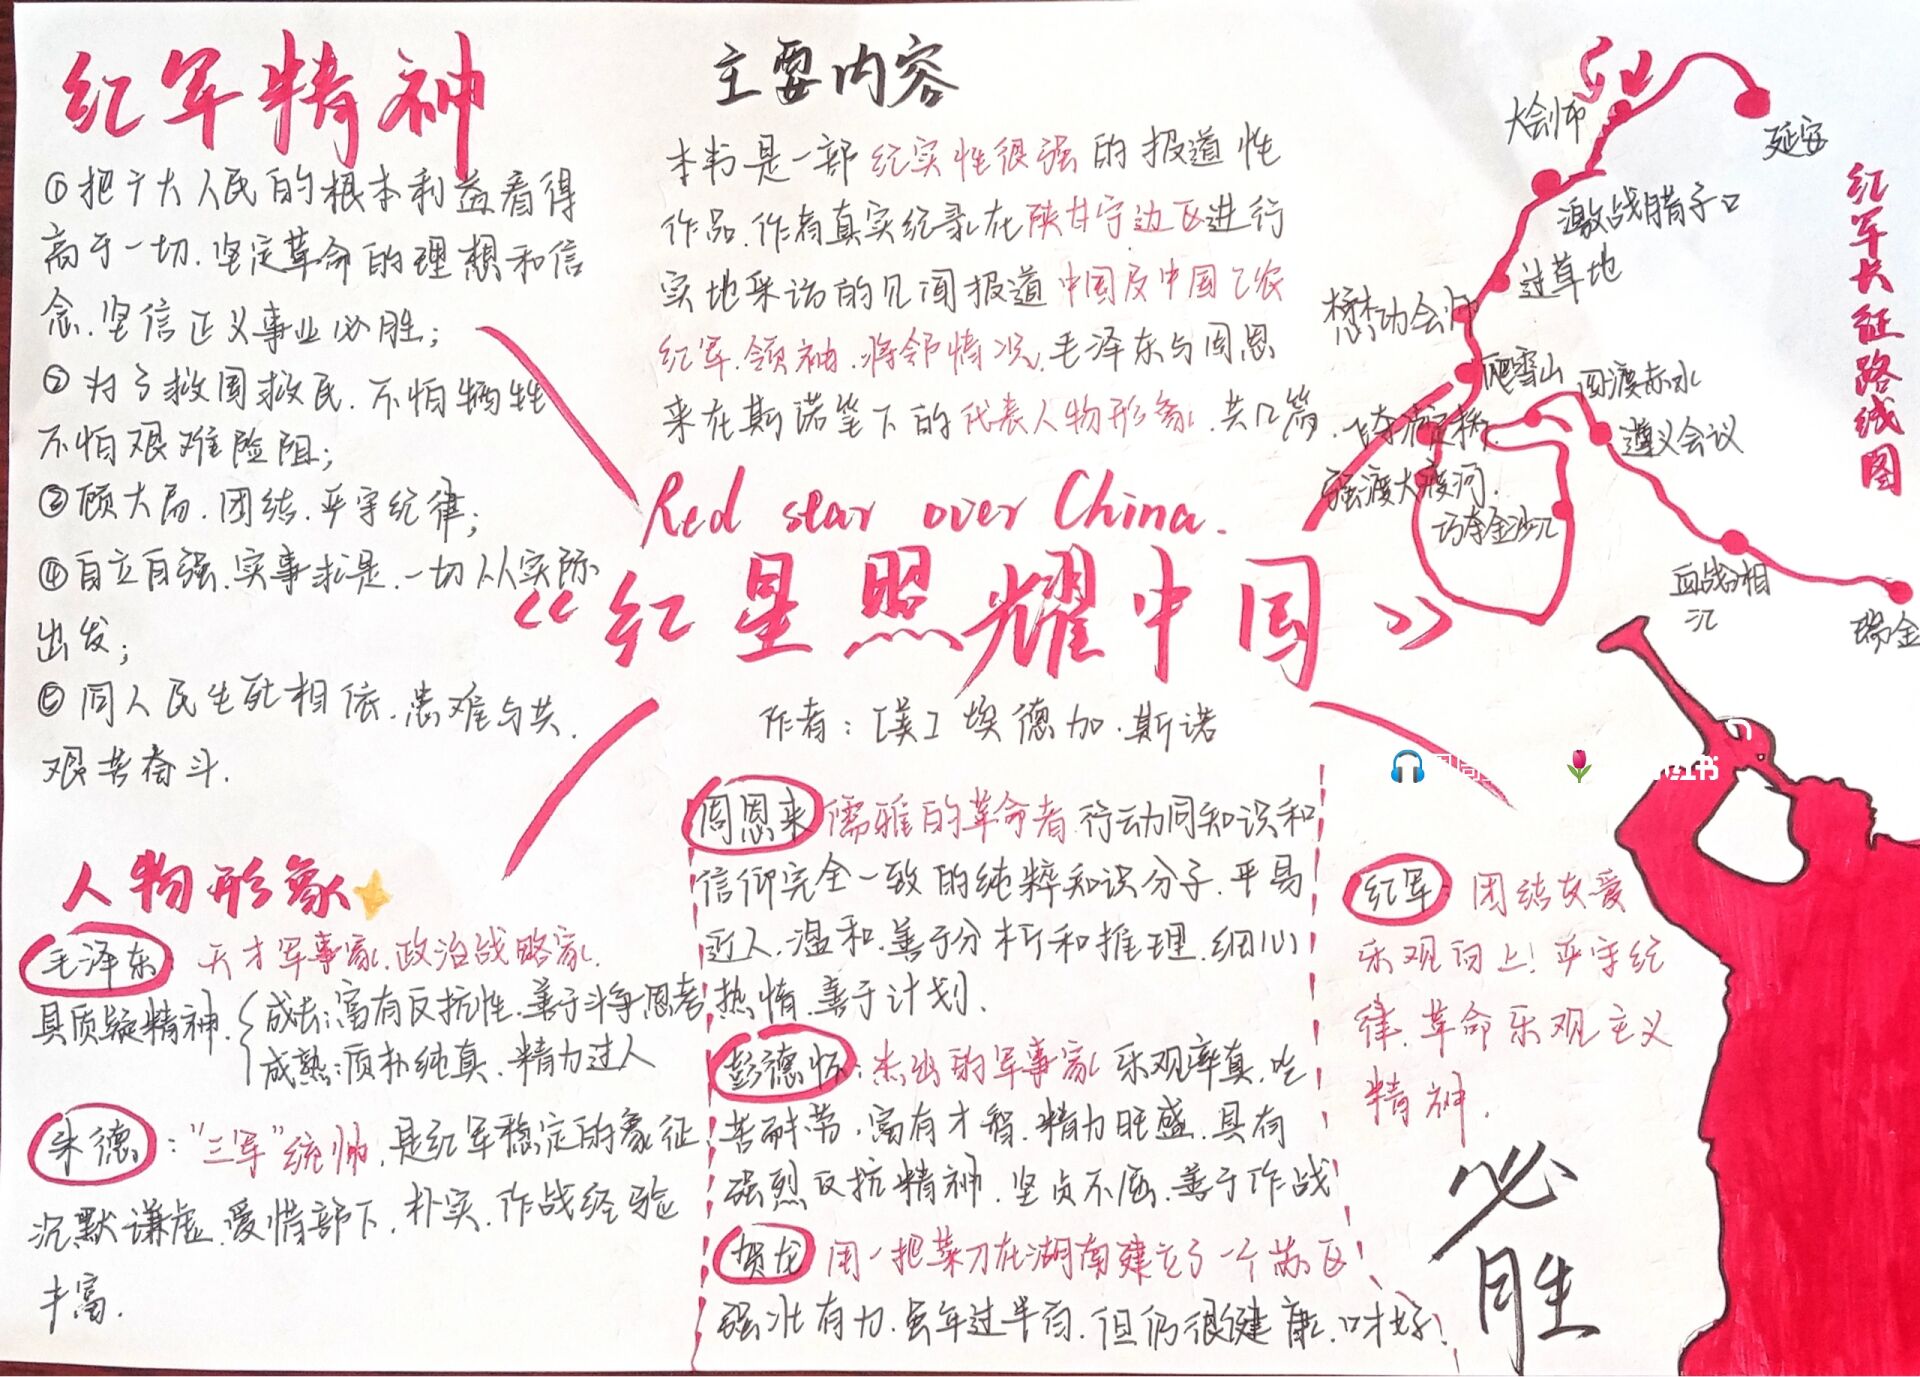 红军精神
①把广大人民的根本利益看得
高于一切.坚定革命的理想和信
念.坚信正义事业必胜;
②为了救国救民.不怕牺牲
不怕艰难险阻;
③顾大局.团结.严守纪律;
④自立自强.实事求是.一切从实际
出发;
⑤同人民生死相依.患难与共.
艰苦奋斗.
主要内容
本书是一部纪实性很强的报道性
作品.作者真实纪录在陕甘宁边区进行
实地采访的见闻报道中国及中国工农
红军.领袖.将领情况.毛泽东与周恩
来在斯诺笔下的代表人物形象.共12篇.
红军长征路线图
大会师
延安
激战腊子口
过草地
懋功会师
爬雪山
四渡赤水
遵义会议
飞夺泸定桥
强渡大渡河.
巧夺金沙江
血战湘
江
瑞金
Red star over China.
《红星照耀中国》
作者:[美]埃德加.斯诺
人物形象
毛泽东:天才军事家.政治战略家.
具质疑精神.
成长:富有反抗性.善于斗争思考
成熟:质朴纯真.精力过人
朱德:"三军"统帅.是红军稳定的象征
沉默谦虚.爱惜部下.朴实.作战经验
丰富.
周恩来 儒雅的革命者.行动同知识和
信仰完全一致的纯粹知识分子.平易
近人.温和.善于分析和推理.细心
热情.善于计划.
彭德怀:杰出的军事家 乐观率真.吃
苦耐劳.富有才智.精力旺盛.具有
强烈反抗精神.坚贞不屈.善于作战
贺龙 用一把菜刀在湖南建立了一个苏区!
强壮有力.虽年过半百.但仍很健康.口才好!
红军:团结友爱
乐观向上!严守纪
律.革命乐观主义
精神.
必
胜